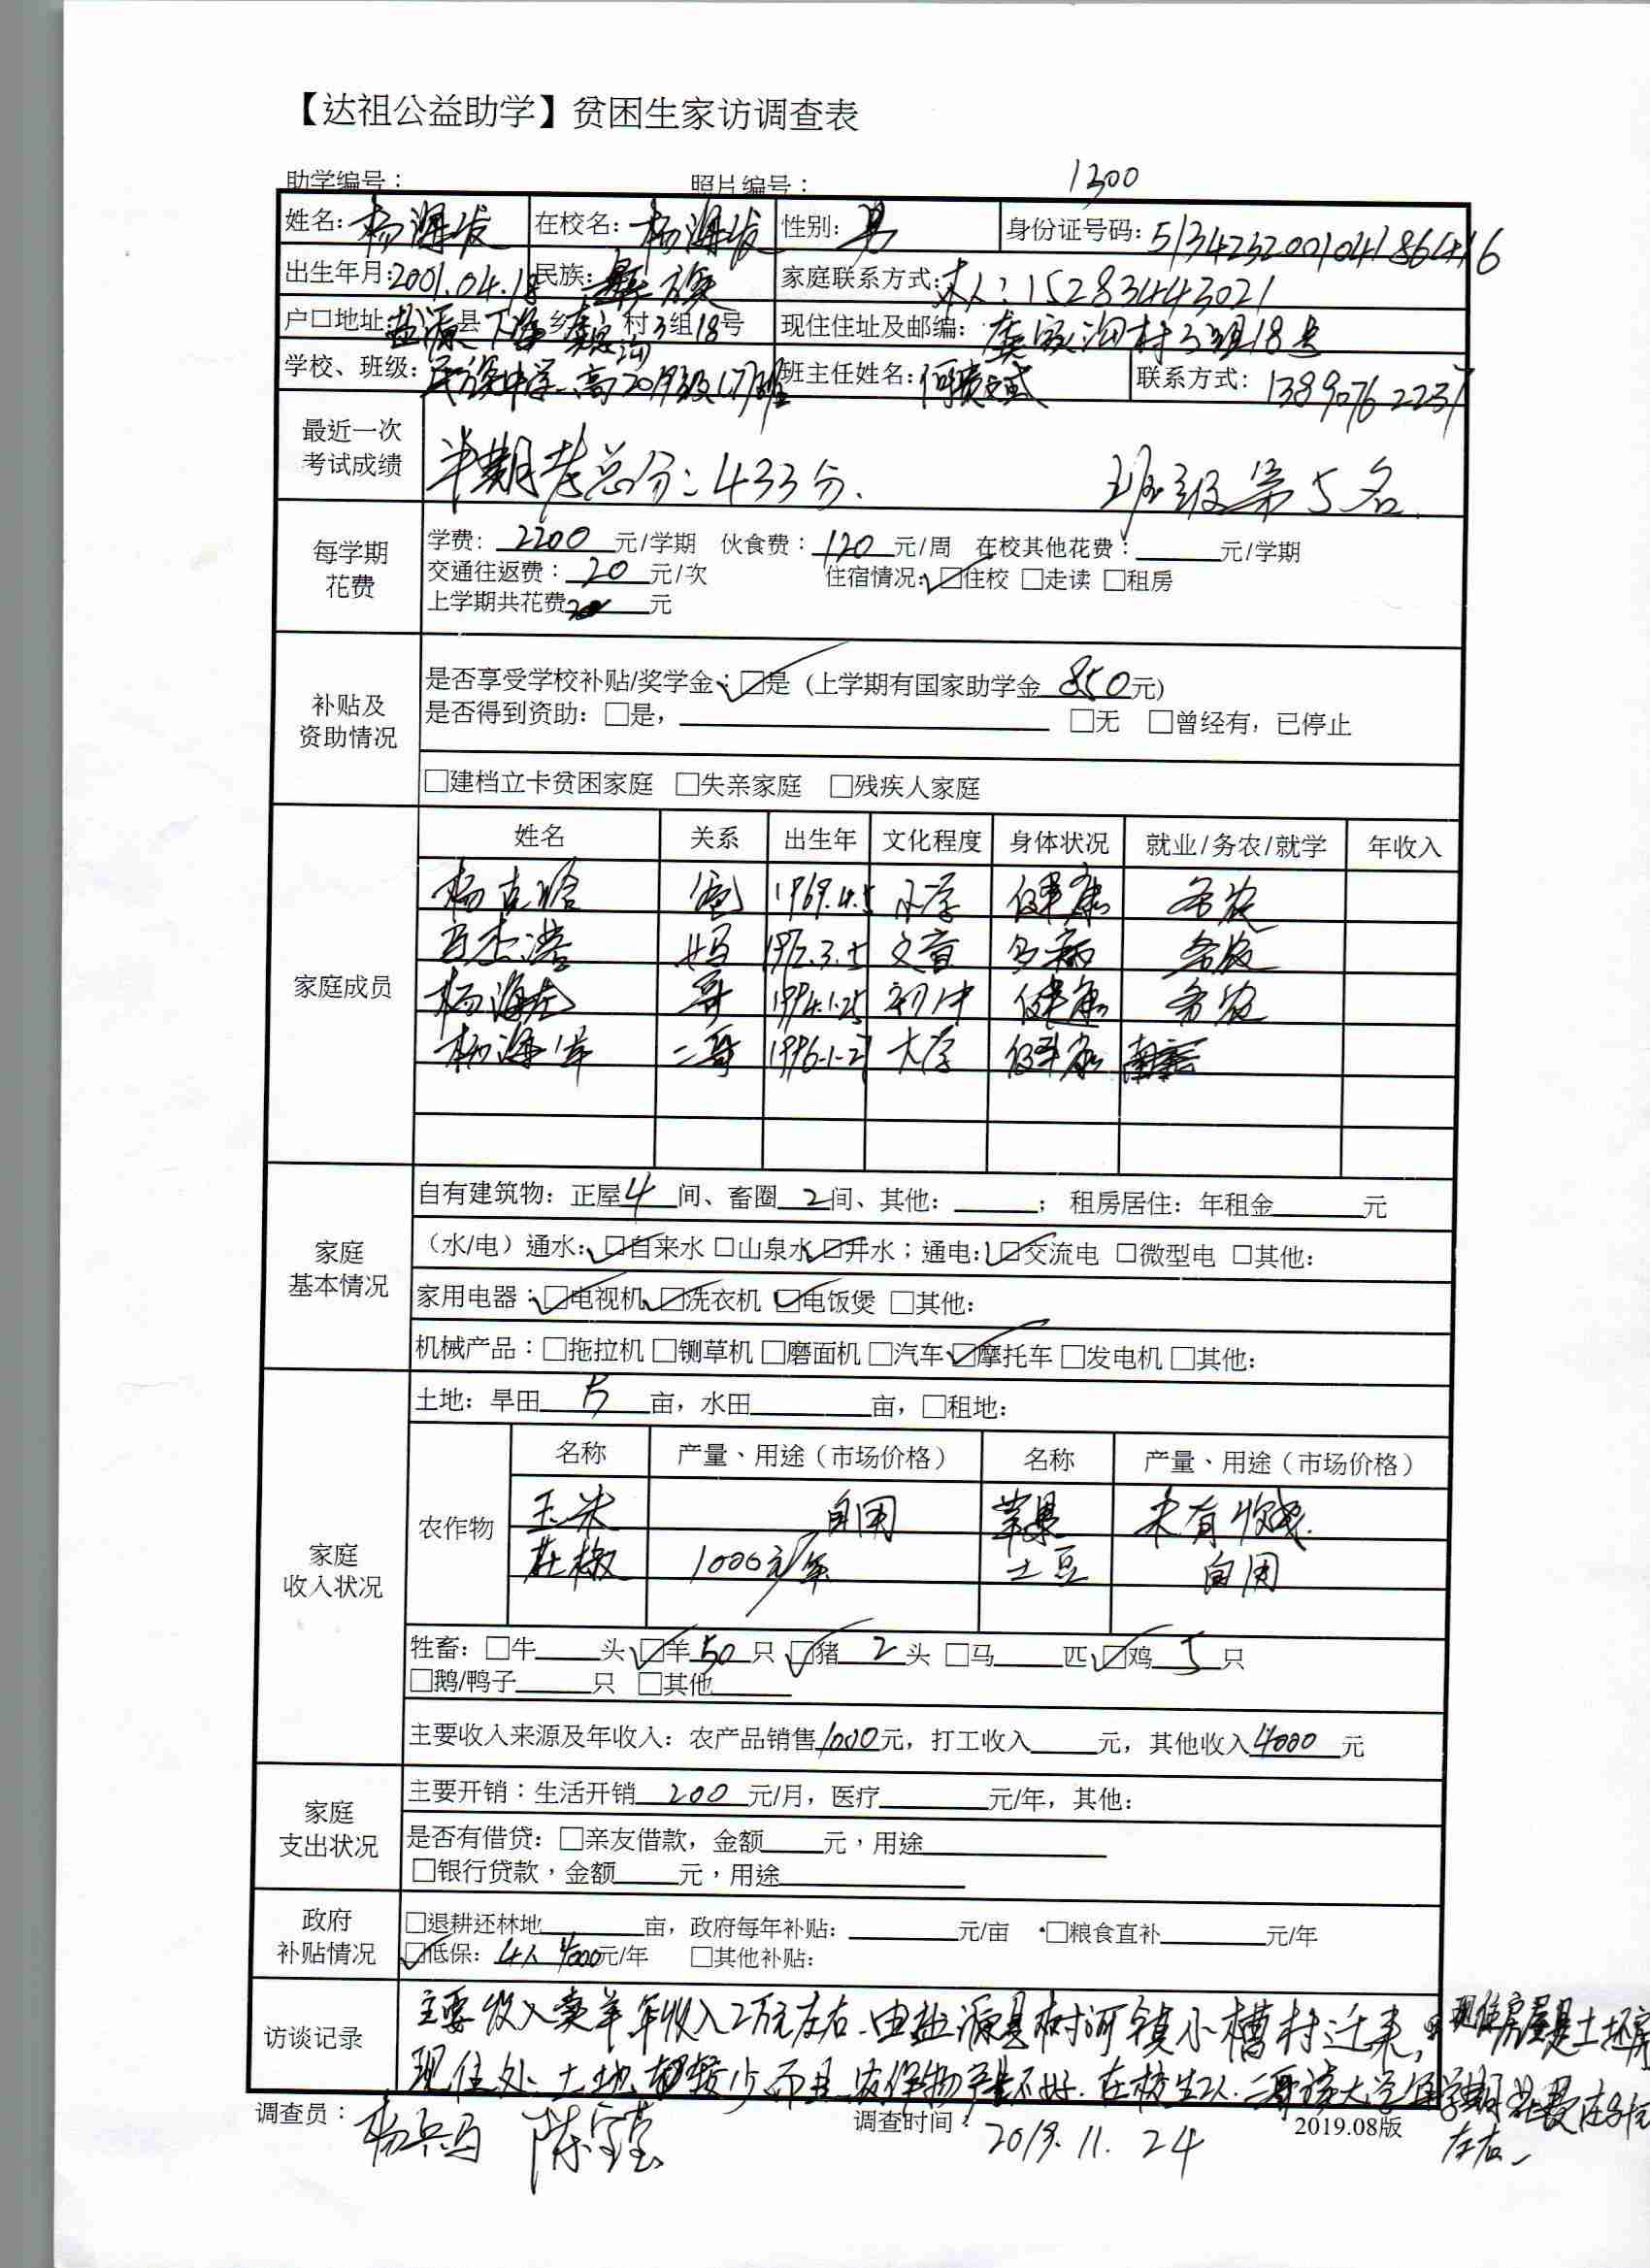 【达祖公益助学】贫困生家访调查表
助学编号： 照片编号： 1300
姓名: 杨海发 在校名: 杨海发 性别: 男 身份证号码:
出生年月: 2001.04.18 民族: 彝族 家庭联系方式: 本人：15283443021
户口地址 盐源县 下海乡 村3组18号 现住住址及邮编: 龚家沟村3组18号
学校、班级: 民族中学 高2019级(7)班 班主任姓名: 联系方式: 13890762231
最近一次考试成绩 半期考总分：433分. 班级第5名.
每学期花费
学费: 2200 元/学期 伙食费: 120 元/周 在校其他花费: 元/学期
交通往返费: 20 元/次 住宿情况: ☑住校 □走读 □租房
上学期共花费 元
补贴及资助情况
是否享受学校补贴/奖学金: ☑是 (上学期有国家助学金 850元)
是否得到资助: □是, □无 □曾经有, 已停止
□建档立卡贫困家庭 □失亲家庭 □残疾人家庭
家庭成员
姓名 关系 出生年 文化程度 身体状况 就业/务农/就学 年收入
杨 爸 1969.4.5 小学 健康 务农
妈 197 .3.5 文盲 多病 务农
杨海 哥 1994.1.25 初中 健康 务农
杨海 二哥 1996-1-27 大学 健康
家庭基本情况
自有建筑物: 正屋 4 间、畜圈 2 间、其他: ; 租房居住: 年租金 元
（水/电）通水: ☑自来水 □山泉水 ☑井水; 通电: ☑交流电 □微型电 □其他:
家用电器: ☑电视机 ☑洗衣机 ☑电饭煲 □其他:
机械产品: □拖拉机 □铡草机 □磨面机 □汽车 ☑摩托车 □发电机 □其他:
家庭收入状况
土地: 旱田 5 亩, 水田 亩, □租地:
农作物
名称 产量、用途（市场价格） 名称 产量、用途（市场价格）
玉米 自用 苹果 未有收成.
花椒 1000元/年 土豆 自用
牲畜: □牛 头 ☑羊 50 只 ☑猪 2 头 □马 匹 ☑鸡 5 只
□鹅/鸭子 只 □其他
主要收入来源及年收入: 农产品销售 1000元, 打工收入 元, 其他收入 4000 元
家庭支出状况
主要开销: 生活开销 200 元/月, 医疗 元/年, 其他:
是否有借贷: □亲友借款, 金额 元, 用途
□银行贷款, 金额 元, 用途
政府补贴情况
□退耕还林地 亩, 政府每年补贴: 元/亩 □粮食直补 元/年
☑低保: 4人 4000元/年 □其他补贴:
访谈记录
主要收入卖羊年收入2万元左右. 由盐源县树河镇小槽村迁来, 现住房屋是土坯房
现住处土地 较少而且农作物产量不好. 在校生2人. 二哥读大学 学期花费
左右.
调查员: 杨兵马 陈宝莹 调查时间: 2019.11.24 2019.08版